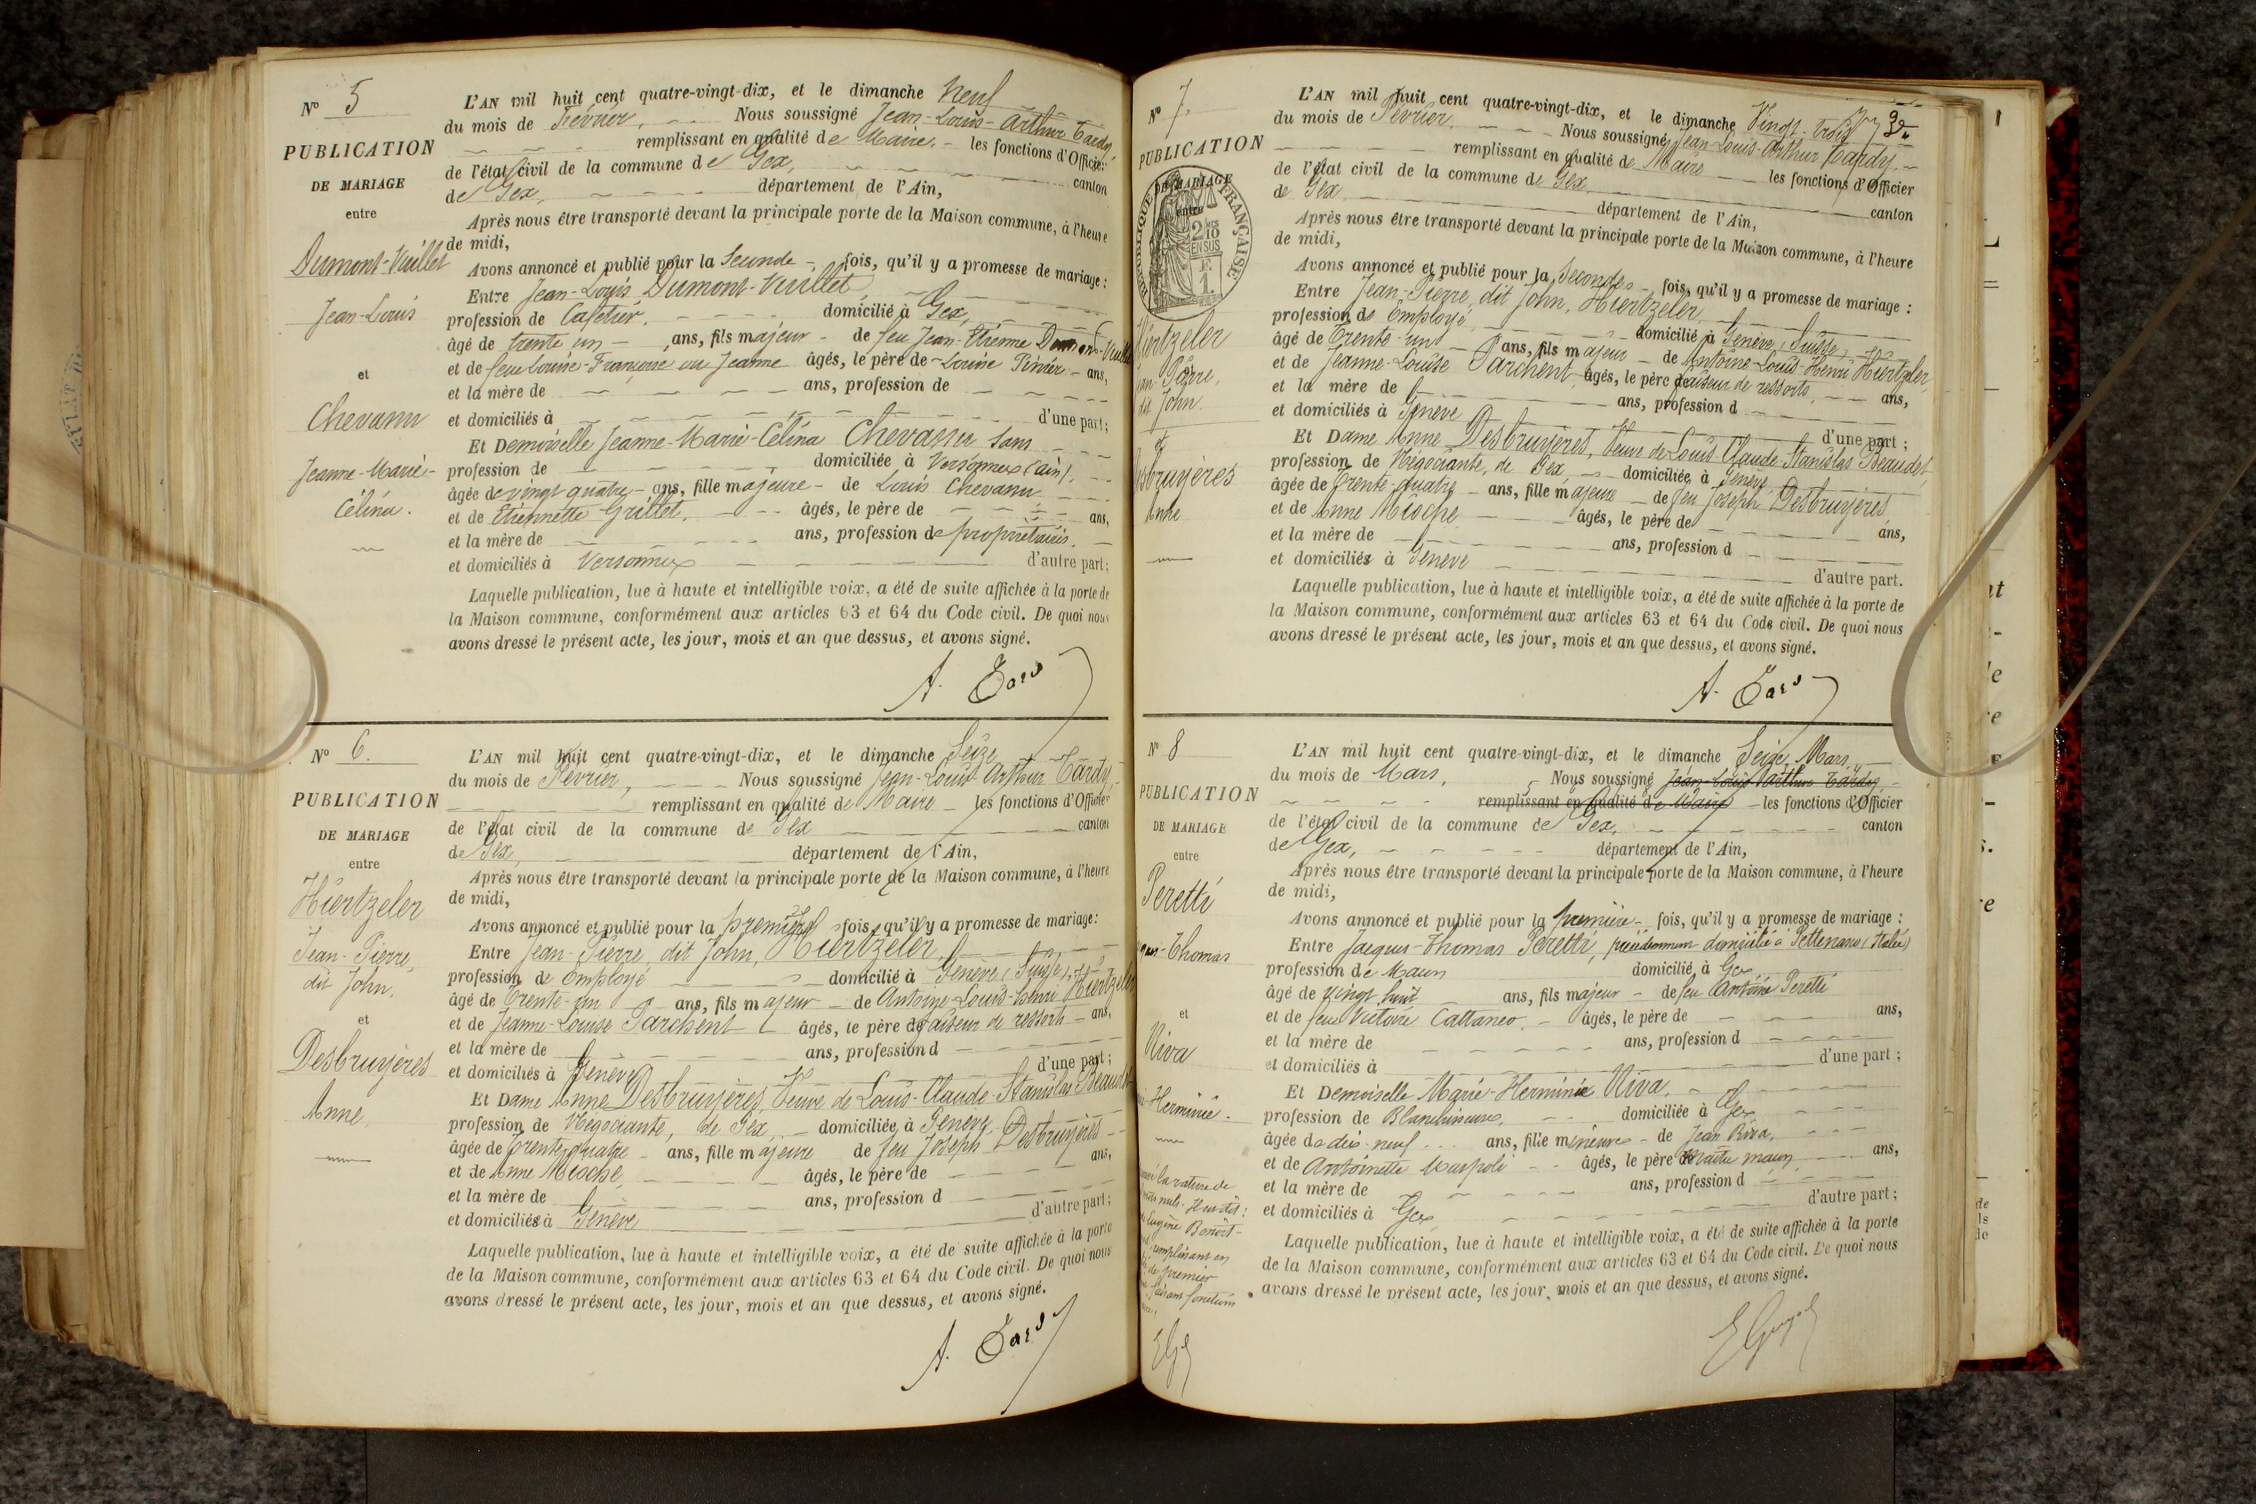 N° 5
PUBLICATION
DE MARIAGE
entre
Dumont-Vuillet
Jean-Louis
et
Chevanu
Jeanne-Marie-
Célina.
L'AN mil huit cent quatre-vingt-dix, et le dimanche Neuf
du mois de Février, Nous soussigné Jean-Louis-Arthur Tardy,
remplissant en qualité de Maire, les fonctions d'Officier
de l'état civil de la commune de Gex, canton
de Gex, département de l'Ain,
Après nous être transporté devant la principale porte de la Maison commune, à l'heure
de midi,
Avons annoncé et publié pour la Seconde fois, qu'il y a promesse de mariage :
Entre Jean-Louis Dumont-Vuillet
profession de Cafetier, domicilié à Gex,
âgé de trente un ans, fils majeur de feu Jean-Etienne Dumont-Vuillet
et de feue Louise-Françoise ou Jeanne âgés, le père de Louise ans,
et la mère de ans, profession de
et domiciliés à d'une part;
Et Demoiselle Jeanne-Marie-Célina Chevanu sans
profession de domiciliée à Versonnex (ain),
âgée de vingt quatre ans, fille majeure de Louis Chevanu
et de Etiennette Grillet, âgés, le père de ans,
et la mère de ans, profession de propriétaires.
et domiciliés à Versonnex d'autre part;
Laquelle publication, lue à haute et intelligible voix, a été de suite affichée à la porte de
la Maison commune, conformément aux articles 63 et 64 du Code civil. De quoi nous
avons dressé le présent acte, les jour, mois et an que dessus, et avons signé.
A. Tardy
N° 6.
PUBLICATION
DE MARIAGE
entre
Hiertzeler
Jean-Pierre,
dit John.
et
Desbruyères
Anne
L'AN mil huit cent quatre-vingt-dix, et le dimanche Seize
du mois de Février, Nous soussigné Jean-Louis-Arthur Tardy,
remplissant en qualité de Maire les fonctions d'Officier
de l'état civil de la commune de Gex canton
de Gex, département de l'Ain,
Après nous être transporté devant la principale porte de la Maison commune, à l'heure
de midi,
Avons annoncé et publié pour la première fois, qu'il y a promesse de mariage:
Entre Jean-Pierre, dit John, Hiertzeler,
profession de Employé domicilié à Genève (Suisse),
âgé de Trente-un ans, fils majeur de Antoine-Louis-Henri Hiertzeler
et de Jeanne-Louise Parchent âgés, le père de faiseur de ressorts ans,
et la mère de ans, profession d
et domiciliés à Genève d'une part;
Et Dame Anne Desbruyères, Veuve de Louis-Claude-Stanislas Beaudet
profession de Négociante, de Gex, domiciliée à Genève
âgée de Trente-quatre ans, fille majeure de feu Joseph Desbruyères
et de Anne Mioche, âgés, le père de ans,
et la mère de ans, profession d
et domiciliés à Genève d'autre part;
Laquelle publication, lue à haute et intelligible voix, a été de suite affichée à la porte
de la Maison commune, conformément aux articles 63 et 64 du Code civil. De quoi nous
avons dressé le présent acte, les jour, mois et an que dessus, et avons signé.
A. Tardy
N° 7.
PUBLICATION
DE MARIAGE
entre
RÉPUBLIQUE FRANÇAISE
2/10 EN SUS
F. 1.
Hiertzeler
Jean-Pierre,
dit John.
et
Desbruyères
Anne
L'AN mil huit cent quatre-vingt-dix, et le dimanche Vingt-trois
du mois de Février, Nous soussigné, Jean-Louis-Arthur Tardy,
remplissant en qualité de Maire les fonctions d'Officier
de l'état civil de la commune de Gex canton
de Gex département de l'Ain,
Après nous être transporté devant la principale porte de la Maison commune, à l'heure
de midi,
Avons annoncé et publié pour la seconde fois, qu'il y a promesse de mariage :
Entre Jean-Pierre, dit John, Hiertzeler,
profession de Employé domicilié à Genève, (Suisse),
âgé de Trente-un ans, fils majeur de Antoine-Louis-Henri Hiertzeler
et de Jeanne-Louise Parchent, âgés, le père de faiseur de ressorts, ans,
et la mère de ans, profession d
et domiciliés à Genève d'une part ;
Et Dame Anne Desbruyères, Veuve de Louis-Claude-Stanislas Beaudet,
profession de Négociante, de Gex, domiciliée à Genève
âgée de Trente-quatre ans, fille majeure de feu Joseph Desbruyères
et de Anne Mioche âgés, le père de ans,
et la mère de ans, profession d
et domiciliés à Genève d'autre part.
Laquelle publication, lue à haute et intelligible voix, a été de suite affichée à la porte de
la Maison commune, conformément aux articles 63 et 64 du Code civil. De quoi nous
avons dressé le présent acte, les jour, mois et an que dessus, et avons signé.
A. Tardy
N° 8
PUBLICATION
DE MARIAGE
entre
Peretti
Thomas
et
Riva
Herminie.
L'AN mil huit cent quatre-vingt-dix, et le dimanche Seize Mars,
du mois de Mars, Nous soussigné Jean-Louis-Arthur Tardy,
remplissant en qualité de Maire les fonctions d'Officier
de l'état civil de la commune de Gex, canton
de Gex, département de l'Ain,
Après nous être transporté devant la principale porte de la Maison commune, à l'heure
de midi,
Avons annoncé et publié pour la première fois, qu'il y a promesse de mariage :
Entre Jacques-Thomas Peretti, précédemment domicilié à Pettenasco (Italie)
profession de Maçon domicilié à Gex
âgé de vingt huit ans, fils majeur de feu Antoine Peretti
et de feu Victoire Cattaneo, âgés, le père de ans,
et la mère de ans, profession d
et domiciliés à d'une part ;
Et Demoiselle Marie-Herminie Riva,
profession de Blanchisseuse, domiciliée à Gex
âgée de dix-neuf ans, fille mineure de Jean Riva,
et de Antoinette âgés, le père de maître maçon, ans,
et la mère de ans, profession d
et domiciliés à Gex d'autre part ;
Laquelle publication, lue à haute et intelligible voix, a été de suite affichée à la porte
de la Maison commune, conformément aux articles 63 et 64 du Code civil. De quoi nous
avons dressé le présent acte, les jour, mois et an que dessus, et avons signé.
la rature de
mots nuls.
Eugène Benoît
remplissant en
de premier
fonctions